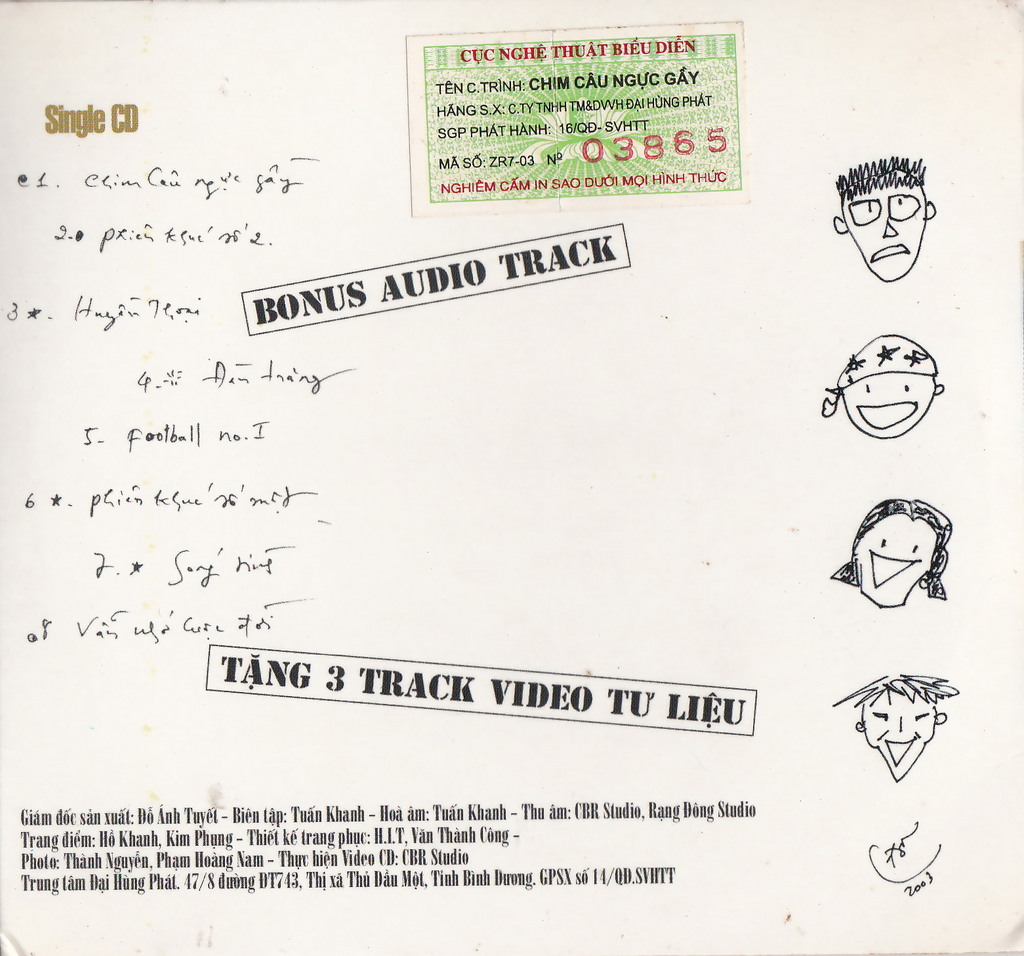 CỤC NGHỆ THUẬT BIỂU DIỄN
TÊN C.TRÌNH: CHIM CÂU NGỰC GẦY
HÃNG S.X: C.TY TNHH TM&DVVH ĐẠI HÙNG PHÁT
SGP PHÁT HÀNH: 16/QĐ- SVHTT
MÃ SỐ: ZR7-03 Nº 03865
NGHIÊM CẤM IN SAO DƯỚI MỌI HÌNH THỨC
Single CD
1. Chim Câu ngực gầy
2. phiên khúc số 2.
BONUS AUDIO TRACK
3 *. Huyền Thoại
4. Đêm trắng
5- football no.I
6 *. phiên khúc số một
7. * Song sinh
8 Vẫn nhớ cuộc đời
TẶNG 3 TRACK VIDEO TƯ LIỆU
Giám đốc sản xuất: Đỗ Ánh Tuyết - Biên tập: Tuấn Khanh - Hoà âm: Tuấn Khanh - Thu âm: CBR Studio, Rạng Đông Studio
Trang điểm: Hồ Khanh, Kim Phụng - Thiết kế trang phục: H.I.T, Văn Thành Công -
Photo: Thành Nguyễn, Phạm Hoàng Nam - Thực hiện Video CD: CBR Studio
Trung tâm Đại Hùng Phát. 47/8 đường ĐT743, Thị xã Thủ Dầu Một, Tỉnh Bình Dương. GPSX số 14/QĐ.SVHTT
2003